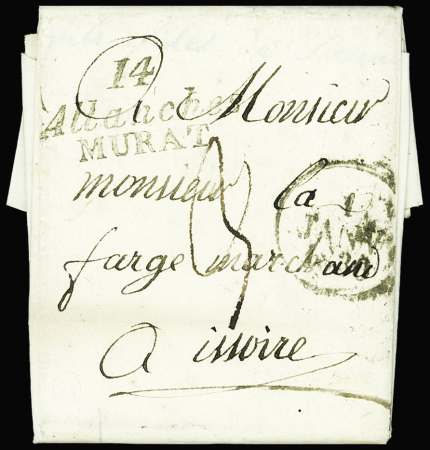 14
Allanche
MURAT
A Monsieur
monsieur la
farge marchand
A issoire
3
17
JANV